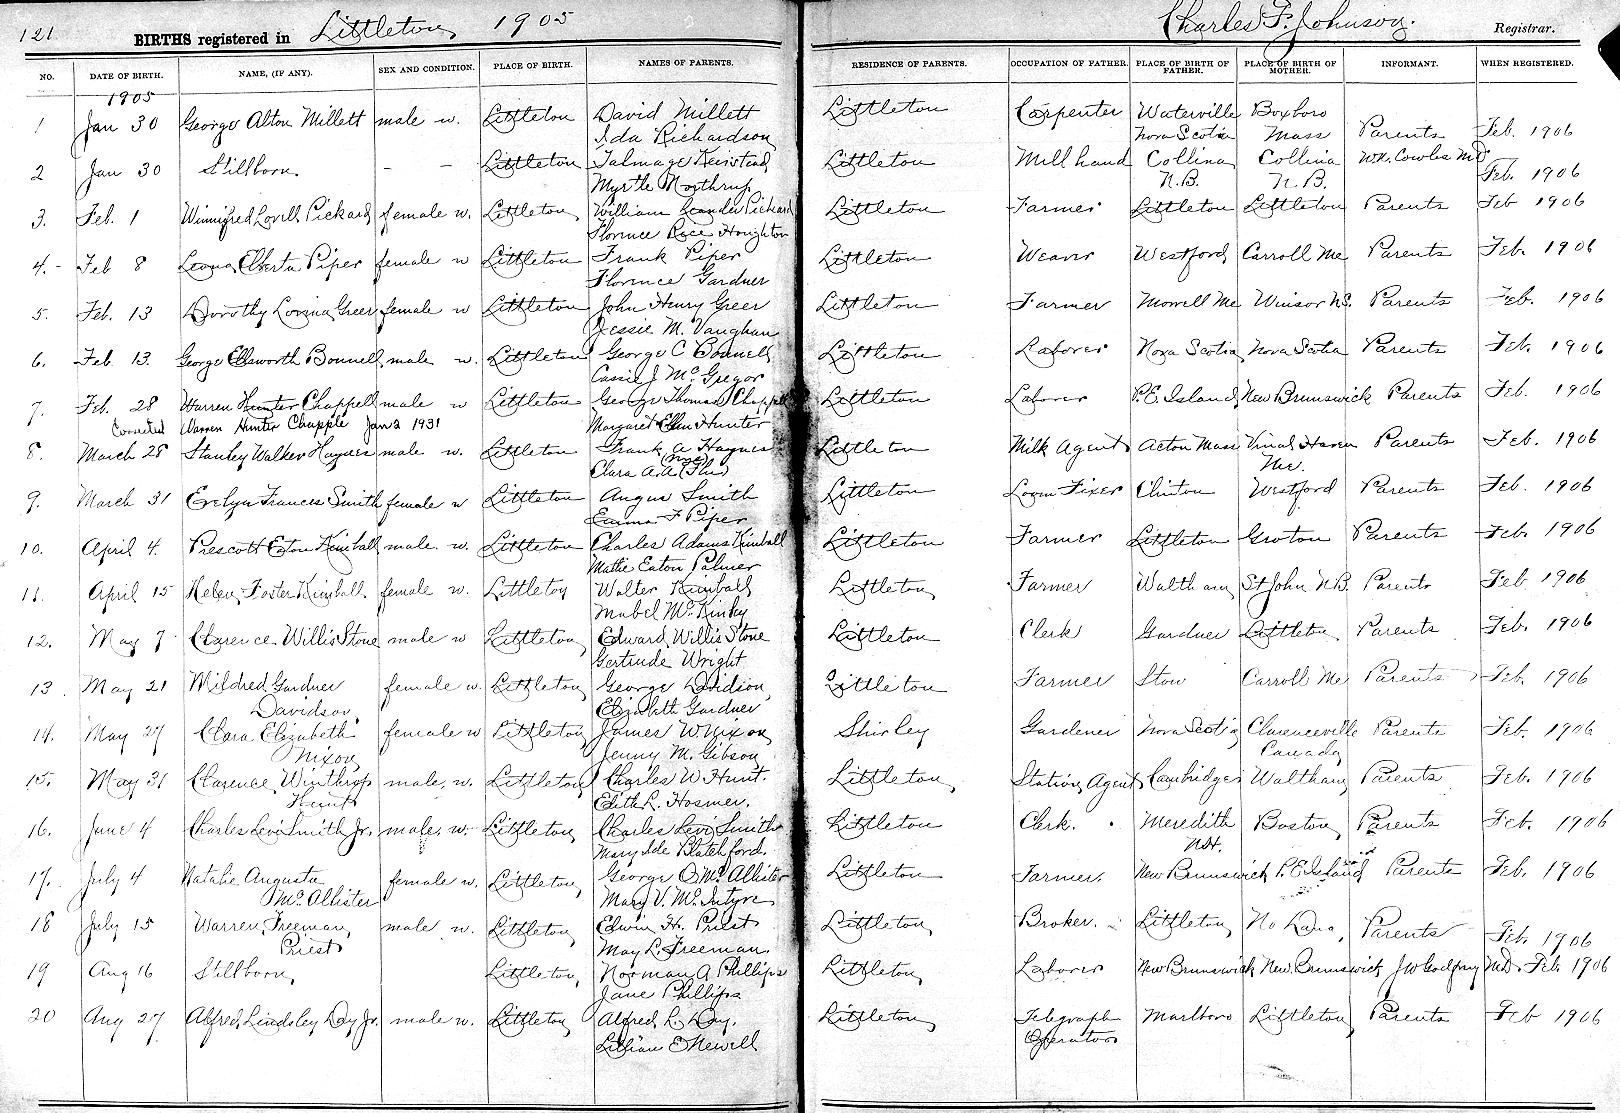 121 BIRTHS registered in Littleton 1905 Charles F. Johnson. Registrar.
NO. DATE OF BIRTH. NAME, (IF ANY). SEX AND CONDITION. PLACE OF BIRTH. NAMES OF PARENTS. RESIDENCE OF PARENTS. OCCUPATION OF FATHER. PLACE OF BIRTH OF FATHER. PLACE OF BIRTH OF MOTHER. INFORMANT. WHEN REGISTERED.
1905
1 Jan 30 George Alton Millett male w. Littleton David Millett Littleton Carpenter Waterville Boxboro
Ida Richardson Nova Scotia Mass Parents Feb. 1906
2 Jan 30 Stillborn - - Littleton Talmage Keirstead Littleton Mill hand Collina Collina Wm. Cowles MD
Myrtle Northrup N.B. N.B. Feb. 1906
3. Feb. 1 Winnifred Lovell Pickard female w. Littleton William Leander Pickard Littleton Farmer Littleton Littleton Parents Feb 1906
Florence Houghton
4.- Feb 8 Leona Elberta Piper female w Littleton Frank Piper Littleton Weaver Westford Carroll Me Parents Feb. 1906
Florence Gardner
5. Feb. 13 Dorothy Lovina Greer female w Littleton John Henry Greer Littleton Farmer Me Winsor N.S. Parents Feb. 1906
Jessie M. Vaughan
6. Feb. 13. George Ellsworth Bonnell male w. Littleton George C Bonnell Littleton Laborer Nova Scotia Nova Scotia Parents Feb. 1906
Cassie J McGregor
7. Feb. 28 Warren Hunter Chappell male w Littleton George Thomas Chappell Littleton Laborer P.E. Island New Brunswick Parents Feb. 1906
Corrected Warren Hunter Chapple Jan 2 1931 Margaret Ellen Hunter
8. March 28 Stanley Walker Haynes male w. Littleton Frank A Haynes Littleton Milk Agent Acton Mass Vinal Haven Parents Feb. 1906
Clara A.A. Me.
9. March 31 Evelyn Frances Smith female w Littleton Angus Smith Littleton Loom Fixer Clinton Westford Parents Feb. 1906
Emma F Piper
10. April 4. Prescott Eaton Kimball male. w. Littleton Charles Adams Kimball Littleton Farmer Littleton Groton Parents Feb. 1906
Mattie Eaton Palmer
11. April 15 Helen Foster Kimball female w. Littleton Walter Kimball Littleton Farmer Waltham St John N.B. Parents Feb 1906
Mabel McKinley
12. May 7 Clarence Willis Stone male w Littleton Edward Willis Stone Littleton Clerk Gardner Littleton Parents Feb. 1906
Gertrude Wright
13. May 21 Mildred Gardner female w. Littleton George Davidson Littleton Farmer Stow Carroll Me Parents Feb. 1906
Davidson. Elizabeth Gardner
14. May 27 Clara Elizabeth female w Littleton James W. Nixon Shirley Gardener Nova Scotia Clarenceville Parents Feb. 1906
Nixon Jenny M. Gibson Canada
15. May 31 Clarence Winthrop male, w. Littleton Charles W Hunt. Littleton Station Agent Cambridge Waltham Parents Feb. 1906
Hunt Edith L. Hosmer.
16. June 4 Charles Levi Smith Jr. male. w. Littleton Charles Levi Smith Littleton Clerk. Meredith Boston Parents Feb. 1906
Mary Ide Blatchford. N.H.
17. July 4 Natalie Augusta female w. Littleton George O McAllister Littleton Farmer. New Brunswick P.E. Island Parents Feb. 1906
McAllister Mary V. McIntyre
18 July 15 Warren Freeman male w. Littleton Edwin H. Priest Littleton Broker. Littleton No Dana Parents Feb. 1906
Priest May L. Freeman.
19 Aug 16 Stillborn Littleton Norman A Phillips Littleton Laborer New Brunswick New Brunswick J W Godfrey M.D. Feb. 1906
Jane Phillips
20 Aug 27 Alfred Lindsley Day Jr. male w. Littleton Alfred L. Day. Littleton Telegraph Marlboro Littleton Parents Feb 1906
Lillian E Newell Operator